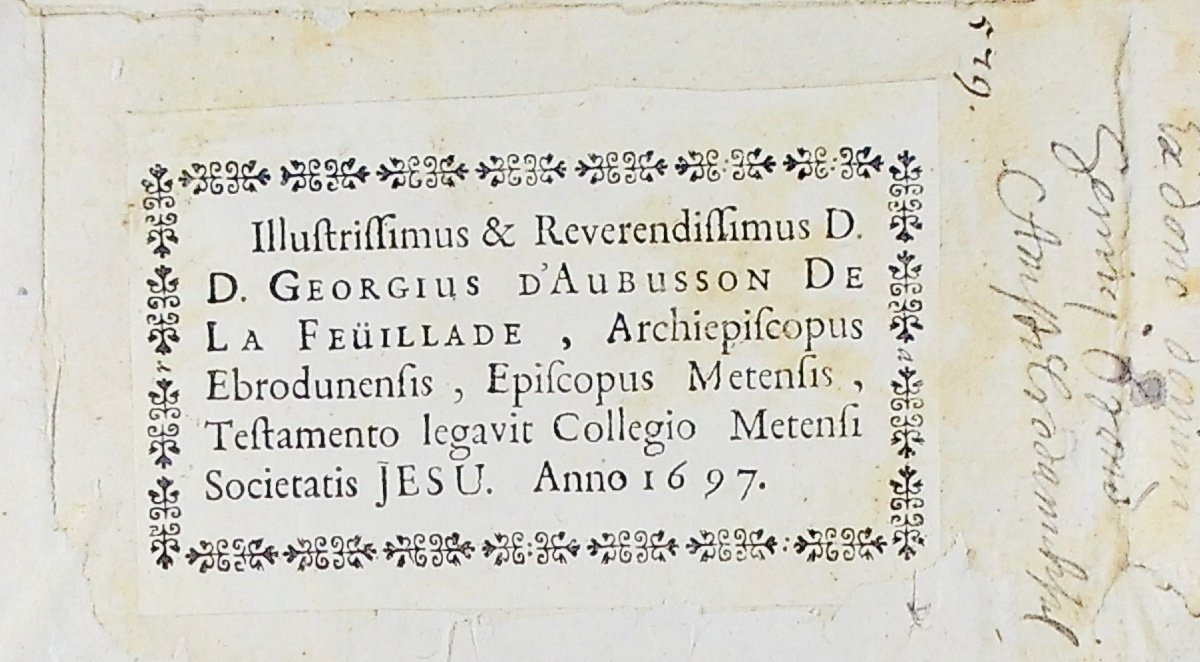 Illuſtriſſimus & Reverendiſſimus D.
D. GEORGIUS D'AUBUSSON DE
LA FEÜILLADE , Archiepiſcopus
Ebrodunenſis , Epiſcopus Metenſis ,
Teſtamento legavit Collegio Metenſi
Societatis JESU. Anno 1697.
579.